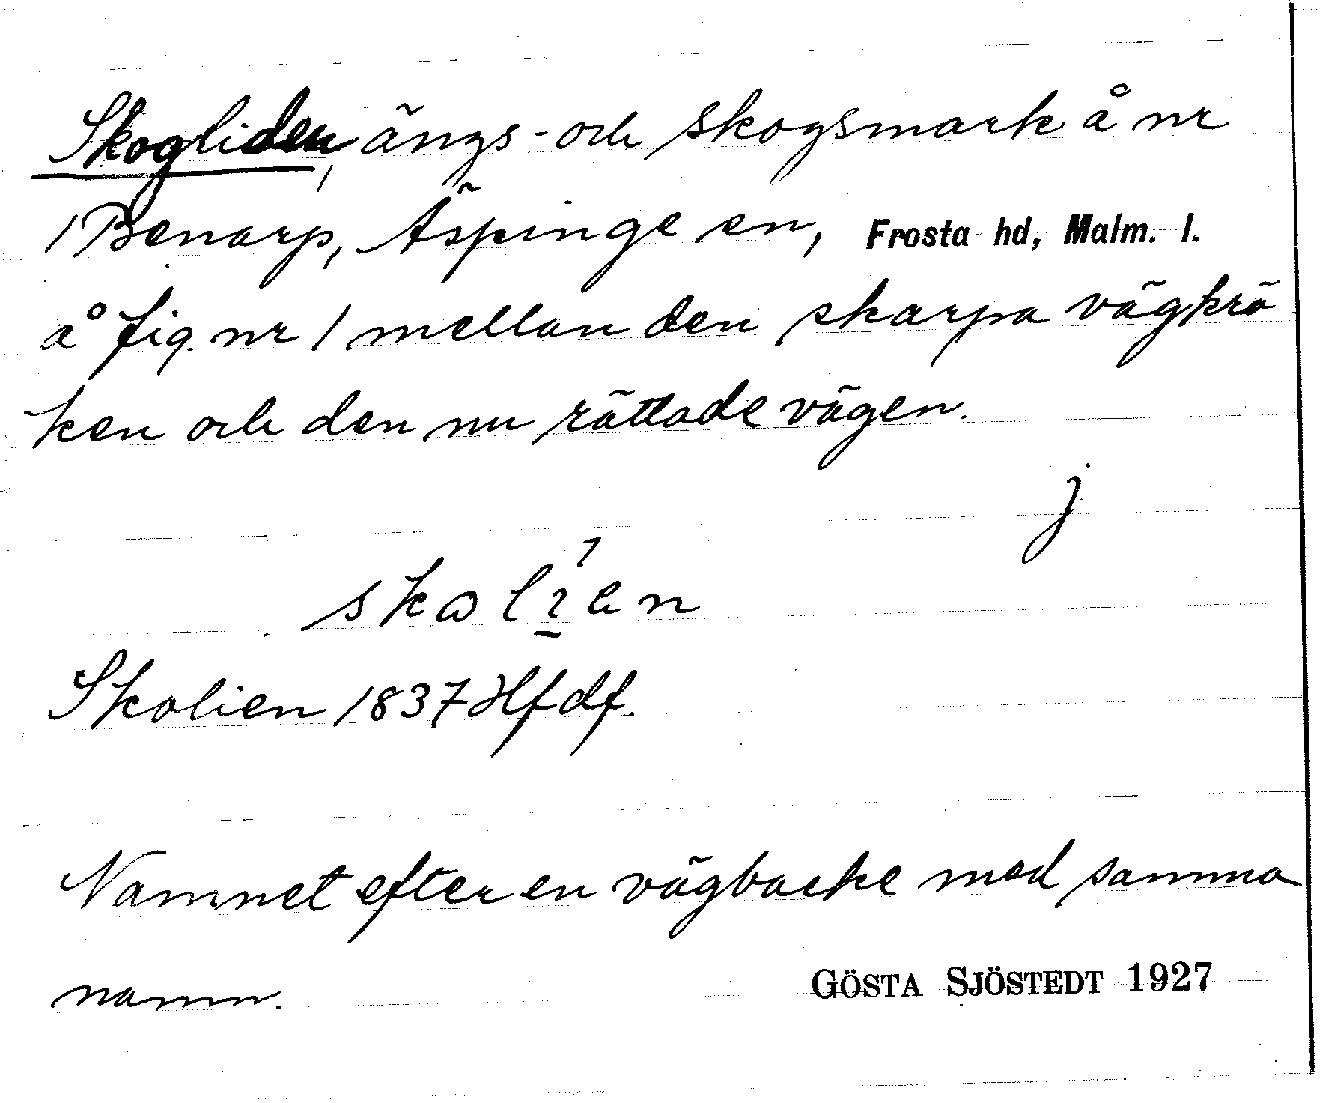 Skogliden, ängs- och skogsmark å nr
1 Benarp, Äspinge sn, Frosta hd, Malm. l.
å fig. nr 1 mellan den skarpa vägkrö
ken och den nu rättade vägen.
j
Skolien 1837 Hfdf.
Namnet efter en vägbacke med samma
namn.
GÖSTA SJÖSTEDT 1927